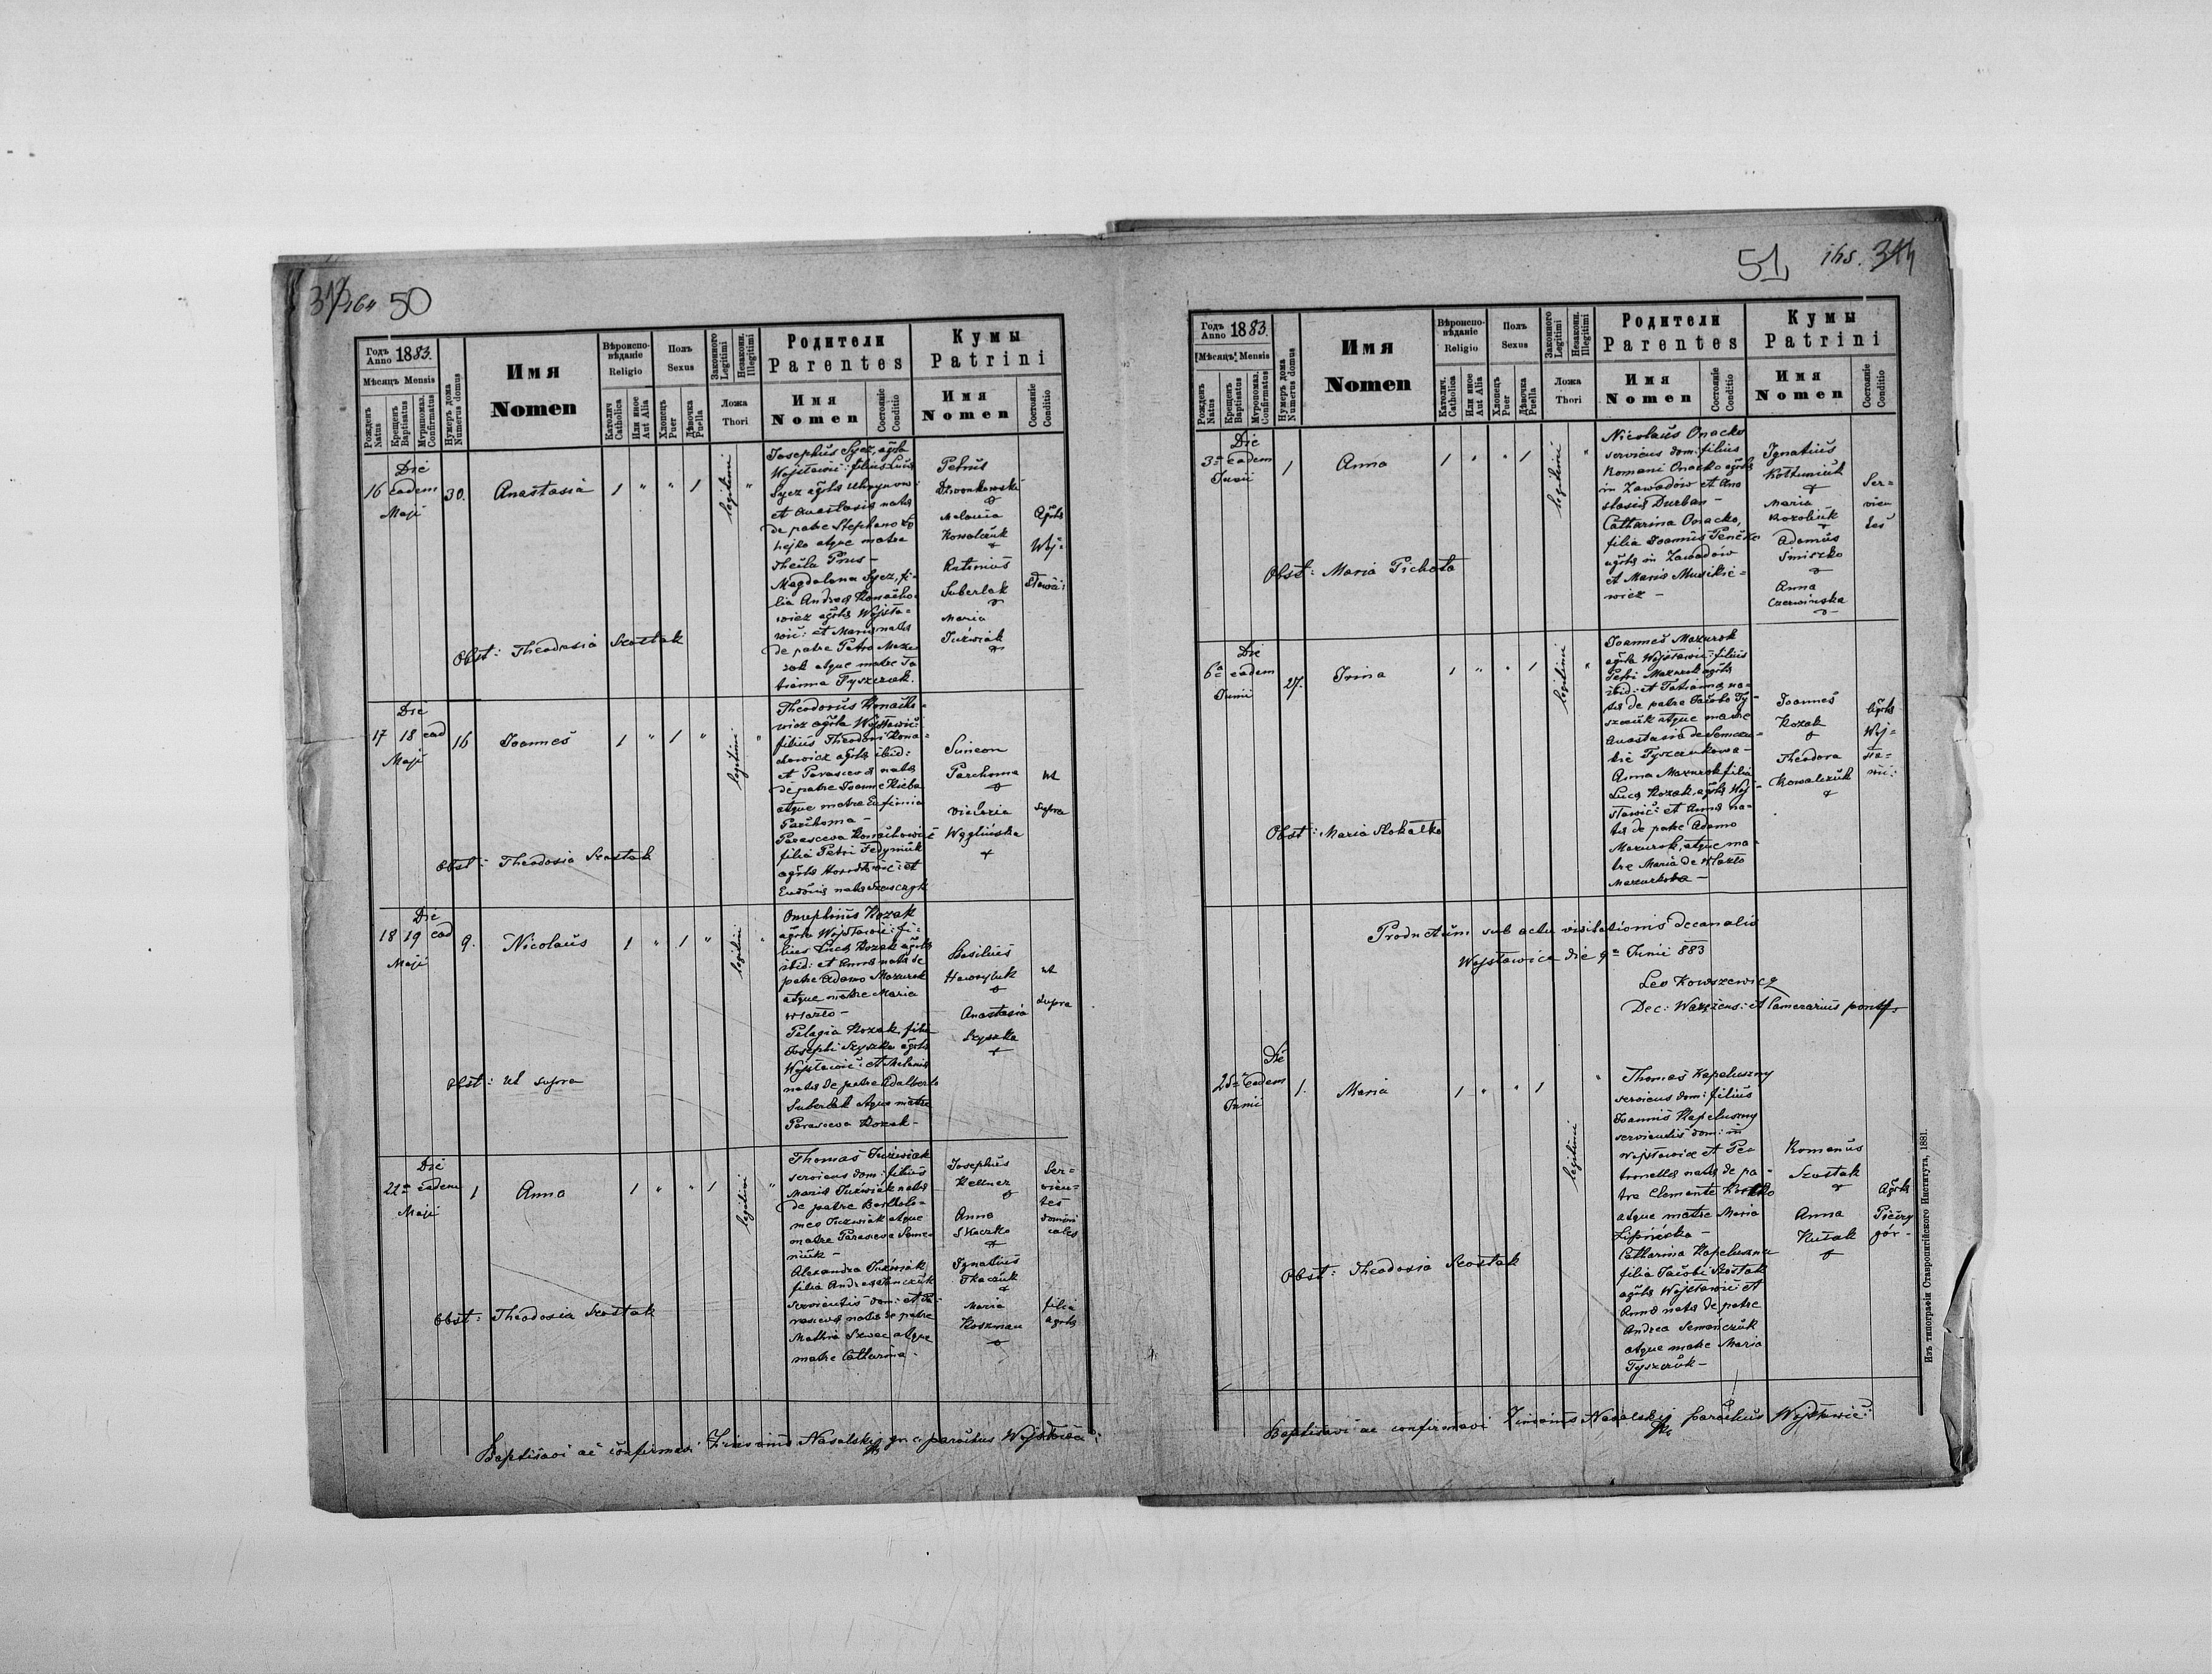 50
Годъ Anno 1883.
Мѣсяцъ Mensis
Рожденъ Natus
Крещенъ Baptisatus
Мѵропомаз. Confirmatus
Нумеръ дома Numerus domus
Имя Nomen
Вѣроисповѣданіе Religio
Католич Catholica
Или иное Aut Alia
Полъ Sexus
Хлопецъ Puer
Дѣвочка Puella
Законного Legitimi
Незаконн. Illegitimi
Ложа Thori
Родители Parentes
Имя Nomen
Состояніе Conditio
Кумы Patrini
Имя Nomen
Состояніе Conditio
Die
16 eadem
Maji
30.
Anastasia
1 " " 1
legitimi
Josephus Sycz, agrla
Wojsławic: filius Lucæ
et Anastasiæ natæ
de patre Stephano
atque matre
Magdalena Sycz, fi-
lia Andreæ
de patre Petro Mazu-
rok atque matre Ta-
tianna Tyszczuk.
Petrus
Dzwonkowski
+
Melania
Kowalczuk
+
Antonius
Suberlak
+
Maria
Juźwiak
+
Agrlæ
Woj-
sławic:
Obst: Theodosia Szostak
Die
17 18 ead
Maji
16
Joannes
1 " 1 "
legitimi
Theodorus Konacho-
wicz agrla Wojsławic:
filius Theodori Kona-
chowicz agrlæ ibid:
et Parascevæ natæ
de patre Joanne
atque matre Eufimia
Parchoma -
Parasceva Konachowicz
filia Petri Fedyniuk
Simeon
Parchoma
+
Victoria
Węglińska
+
ut
supra
Obst: Theodosia Szostak
Die
18 19 ead
Maji
9.
Nicolaus
1 " 1 "
legitimi
Onuphrius Kozak
agrla Wojsławic: fi-
lius Lucæ Kozak agrlæ
ibid: et Annæ natæ de
patre Adamo Mazurok
atque matre Maria
Wlazło -
Pelagia Kozak, filia
Josephi Szyszka agrlæ
Wojsławic: et Melaniæ
natæ de patre Adalberto
Suberlak atque matre
Parasceva Kozak -
Basilius
Hawryluk
+
Anastasia
Szyszka
+
ut
supra
Obst: ut supra
Die
22a eadem
Maji
1
Anna
1 " " 1
legitimi
Thomas Juźwiak
serviens dom: filius
Mariæ Juźwiak natæ
de patre Bartholo-
meo Juźwiak atque
matre Parasceva Seme-
niuk -
Alexandra Juźwiak
filia Andreæ
servientis dom: et Pa-
rascevæ natæ de patre
Mathia Szwac atque
matre Catharina -
Josephus
Kellner
+
Anna
Skaczko
+
Ignatius
Tkaczuk
+
Maria
Koszman
+
Ser-
vien-
tes
domini
cales
filia
agrlæ
Obst: Theodosia Szostak
Baptisavi ac confirmavi Nasalskij gr. c. parochus Wojsławic:
51
Годъ Anno 1883.
Мѣсяцъ Mensis
Рожденъ Natus
Крещенъ Baptisatus
Мѵропомаз. Confirmatus
Нумеръ дома Numerus domus
Имя Nomen
Вѣроисповѣданіе Religio
Католич. Catholica
Или иное Aut Alia
Полъ Sexus
Хлопецъ Puer
Дѣвочка Puella
Законного Legitimi
Незаконн. Illegitimi
Ложа Thori
Родители Parentes
Имя Nomen
Состояніе Conditio
Кумы Patrini
Имя Nomen
Состояніе Conditio
Die
3a eadem
Junii
1
Anna
1 " " 1
legitimi
"
Nicolaus Onacko
serviens dom: filius
Romani Onacko agrlæ
in Zawadów et Ana-
stasiæ Durban -
Catharina Onacko,
filia Joannis
agrlæ in Zawadów
et Mariæ Musikie-
wicz -
Ignatius
Kottuniuk
+
Maria
Kozoliuk
+
Adamus
Smiszko
+
Anna
Czerwińska
+
Ser-
vien
tes
Obst: Maria Pichota
Die
6a eadem
Junii
27.
Irina
1 " " 1
legitimi
"
Joannes Mazurok
agrla Wojsławic: filius
Petri Mazurok agrlæ
ibid: et Tatiannæ na-
tæ de patre Jacobo Ty-
szczuk atque matre
Anastasia de
Tyszczukowa -
Anna Mazurok filia
Lucæ Kozak, agrlæ Woj-
sławic: et Annæ na-
tæ de patre Adamo
Mazurok, atque ma-
tre Maria de Wlazło
Mazurkowa -
Joannes
Kozak
+
Theodora
Kowalczuk
+
Agrlæ
Woj-
sła-
wic:
Obst: Maria Słokałko
Productum sub actu visitationis decanalis
Wojsławice die 9a Junii 883
Leo Kowszewicz
Dec: Waręzens: et Camerarius pontif.
Die
25a eadem
Junii
1.
Maria
1 " " 1
legitimi
"
Thomas Kapeluszny
serviens dom: filius
Joannis Kapeluszny
servientis dom: in
Wojsławice et Pe-
tronellæ natæ de pa-
tre Clemente
atque matre Maria
Lipińska -
Catharina Kapeluszna
filia Jacobi Szostak
agrlæ Wojsławic: et
Annæ natæ de patre
Andrea Semańczuk
atque matre Maria
Tyszczuk -
Romanus
Szostak
+
Anna
Kutak
+
Agrlæ
Obst: Theodosia Szostak
Baptisavi ac confirmavi Nasalskij parochus Wojsławic:
Изъ типографіи Ставропигійского Института, 1881.